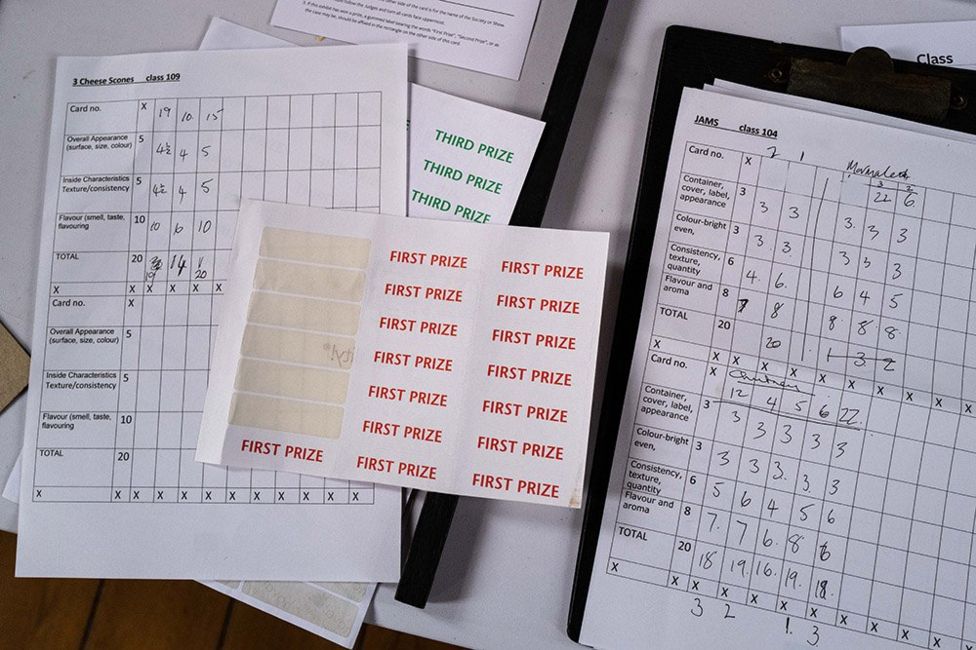 the Judges and turn all cards face uppermost.
3. If this exhibit has won a prize, a gummed label bearing the words "First Prize", "Second Prize", or as
the case may be, should be affixed in the rectangle on the other side of this card.
3 Cheese Scones class 109
Card no. X 19 10 15
Overall Appearance
(surface, size, colour) 5 4½ 4 5
Inside Characteristics
Texture/consistency 5 4½ 4 5
Flavour (smell, taste,
flavouring 10 10 6 10
TOTAL 20 19 14 20
X X X X X
Card no. X
Overall Appearance
(surface, size, colour) 5
Inside Characteristics
Texture/consistency 5
Flavour (smell, taste,
flavouring 10
TOTAL 20
X X X X X X X X X X X
THIRD PRIZE
THIRD PRIZE
THIRD PRIZE
FIRST PRIZE FIRST PRIZE
FIRST PRIZE FIRST PRIZE
FIRST PRIZE FIRST PRIZE
FIRST PRIZE FIRST PRIZE
FIRST PRIZE FIRST PRIZE
FIRST PRIZE FIRST PRIZE
FIRST PRIZE FIRST PRIZE FIRST PRIZE
Class
JAMS class 104
Card no. X 2 1
Container,
cover, label,
appearance 3 3 3 3. 3 3
Colour-bright
even, 3 3. 3. 3 3 3
Consistency,
texture,
quantity 6 4. 6. 6 4 5
Flavour and
aroma 8 8 8. 8. 8.
TOTAL 20 20
X X X X X X X X X
Card no. X Chutney
12 4 5 6 22
Container,
cover, label,
appearance 3 3 3 3 3 3
Colour-bright
even, 3 3 3 3. 3. 3
Consistency,
texture,
quantity 6 5 6 4 5 6
Flavour and
aroma 8 7. 7 6. 8 6
TOTAL 20 18 19. 16. 19. 18.
X X X X X X X X X X
3 2 1. 3